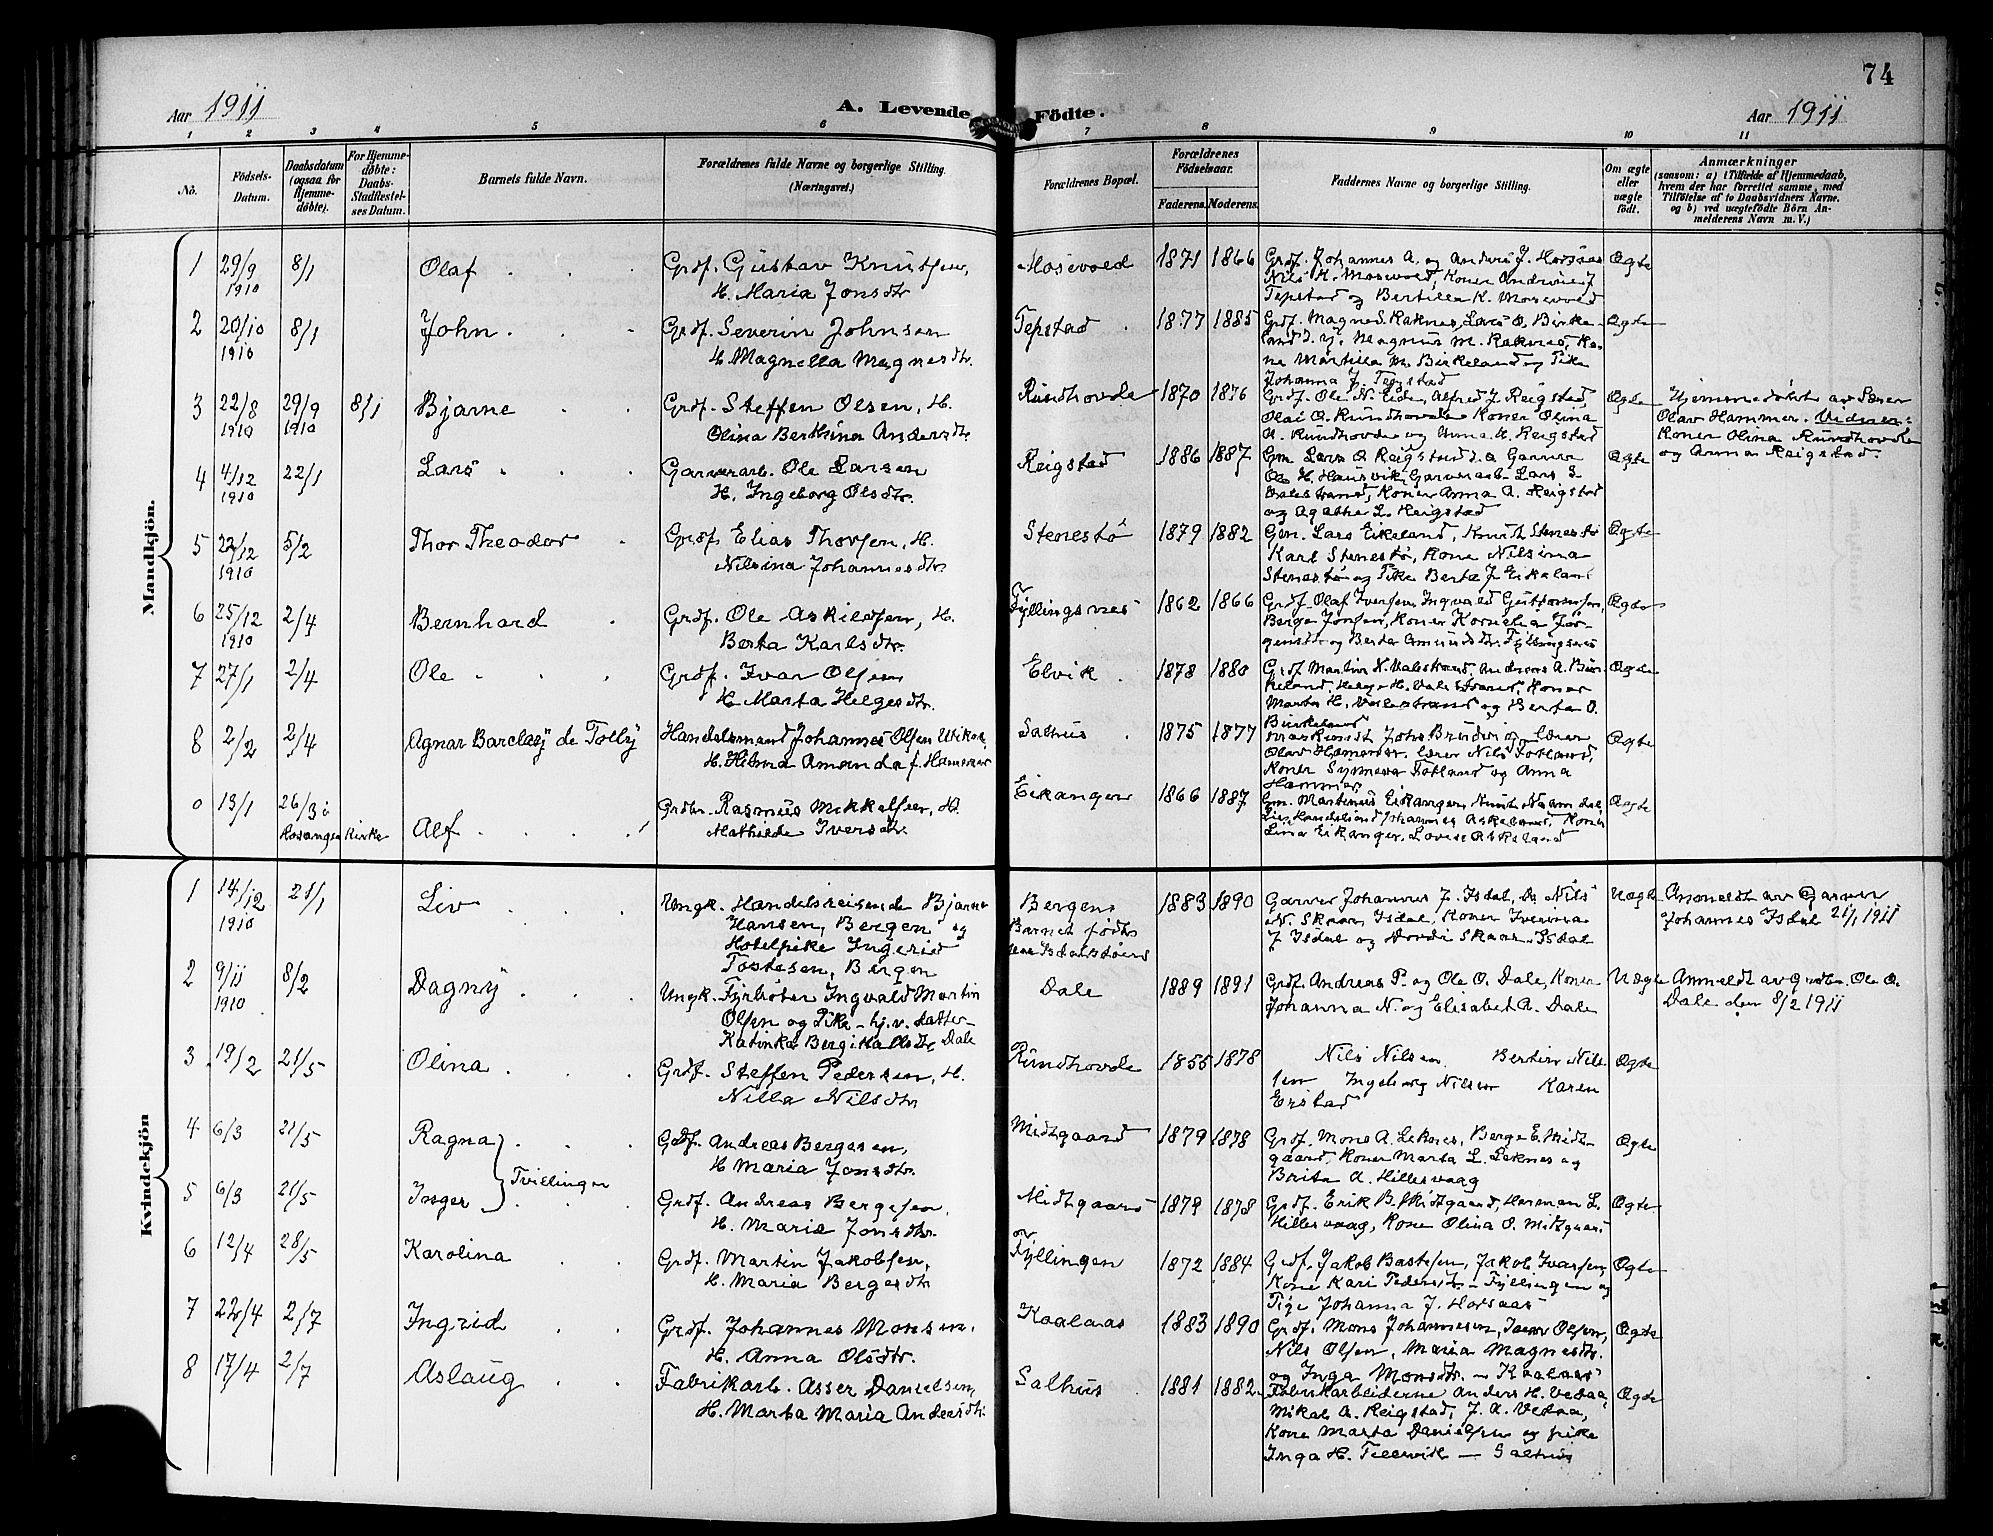 74
Aar 1911
A. Levende Födte.
Aar 1911
1 2 3 4 5 6 7 8 9 10 11
No.
Födsels-Datum.
Daabsdatum (ogsaa for Hjemme-döbte).
For Hjemme-döbte: Daabs-Stadfæstel-ses Datum.
Barnets fulde Navn.
Forældrenes fulde Navne og borgerlige Stilling. (Næringsvei.)
Forældrenes Bopæl.
Forældrenes Födselsaar.
Faderens. Moderens.
Faddernes Navne og borgerlige Stilling.
Om ægte eller uægte födt.
Anmærkninger
(saasom: a) i Tilfælde af Hjemmedaab,
hvem der har forrettet samme, med
Tilföielse af to Daabsvidners Navne.
og b) ved uægtefödte Börn An-
melderens Navn m. V.)
Mandkjön.
1 29/9 1910 8/1 Olaf Grdf. Gustav Knutsen, Mosevold 1871 1866 Grdf. Johannes A. og Anders J. Horsaas Ægte
H. Maria Jonsdtr Nils K. Mosevold, Koner Andrine J
Tepstad og Bertilla K. Mosevold
2 20/10 1910 8/1 John Grdf. Severin Johnsen Tepstad 1877 1885 Grdf. Magne S. Raknes, Lars O. Birke- Ægte
H. Magnella Magnesdtr. land d. y. Magnus M. Raknes, Ko-
ne Martilla M. Birkeland og Pike
Johanna J. Tepstad
3 22/8 1910 29/9 1910 8/1 Bjarne Grdf. Steffen Olsen, H. Rundhovde 1870 1876 Grdf. Ole N. Eide, Alfred J. Reigstad Ægte Hjemmedøbt av Lærer
Olina Berthina Andersdtr. Olai O. Rundhovde Koner Olina Olav Hammer. Vidner:
A. Rundhovde og Anna H. Reigstad Koner Olina Rundhovde
og Anna Reigstad.
4 4/12 1910 22/1 Lars Garverarb. Ole Larsen Reigstad 1886 1887 Gm. Lars O Reigstad d. a Garver Ægte
H. Ingeborg Olsdtr. Ole H. Hausvik, Garverarb. Lars L
Valestrand, Koner Anna A. Reigstad
og Agathe L. Reigstad
5 22/12 1910 5/2 Thor Theodor Grdf. Elias Thorsen, H. Stenestö 1879 1882 Gm. Lars Eikeland, Knut Stenestö Ægte
Nilsina Johannesdtr. Karl Stenestö, Kone Nilsina
Stenestö og Pike Berta J. Eikeland
6 25/12 1910 2/4 Bernhard Grdf. Ole Askildsen, H. Fyllingsnes 1862 1866 Grdf. Olaf Iversen, Ingvald Guttormsen, Ægte
Berta Karlsdtr. Berge Jonsen, Koner Kornelia Jør-
gensdtr og Berta Amundsdtr Fyllingsnes
7 27/1 2/4 Ole Grdf. Ivar Olsen Elvik 1878 1880 Grdf. Martin N. Valestrand, Andreas A. Bir- Ægte
H. Marta Helgesdtr. keland, Helge H. Valestrand, Koner
Marta H. Valestrand og Berta O.
Birkeland
8 2/2 2/4 Agnar Barclay de Tolly Handelsmand Johannes Olsen Salhus 1875 1877 John Brudvig, Lærer Ægte
H. Hilma Amanda f. Hammer Olav Hammer, Lærer Nils Fotland,
Koner Synneva Fotland og Anna
Hammer
0 13/1 26/3 i Alf Grdbr. Rasmus Mikkelsen, H. Eikanger 1866 1887 Gm. Martinus Eikanger, Ægte
Hosanger Kirke Mathilde Iversdtr. Handelsmand Johannes Askeland, Koner
Lina Eikanger, Lovise Askeland
Kvindekjön
1 14/12 1910 21/1 Liv Ungk. Handelsreisende Bjarne Bergens 1883 1890 Garver Johannes J. Isdal, Do Nils Uægte Anmeldt av Garver
Hansen, Bergen og Barnet født N. Skaar, Isdal, Koner Johannes Isdal 21/1 1911
Hotelpike Ingerid J Isdal og Dordi Skaar, Isdal
Tostesen, Bergen
2 9/11 1910 8/2 Dagny Ungk. Fyrbøter Ingvald Martin Dale 1889 1891 Grdf. Andreas P. og Ole O. Dale, Koner Uægte Anmeldt av Grdbr. Ole O.
Olsen og Pike – hj.v. datter – Johanna N. og Elisabet A. Dale Dale den 8/2 1911
Katinka Bergitha Olsdtr. Dale
3 19/2 21/5 Olina Grdf. Steffen Pedersen, H. Rundhovde 1855 1878 Nils Nilsen Bertin Nil- Ægte
Nilla Nilsdtr sen Ingeborg Nilsen Karen
Eistad
4 6/3 21/5 Ragna Grdf. Andreas Bergesen, Midtgaard 1879 1878 Grdf. Mons A. Leknes, Berge E. Midt- Ægte
H. Maria Jonsdtr. gaard, Koner Marta L. Leknes og
Brita A. Hillesvaag
Tvillinger
5 6/3 21/5 Inger Grdf. Andreas Bergesen, Midtgaard 1879 1878 Grdf. Erik B. Midtgaard, Herman L. Ægte
H. Maria Jonsdtr. Hillesvaag, Kone Olina O. Midtgaard
6 12/4 28/5 Karolina Grdf. Martin Jakobsen, Fyllingen 1872 1884 Grdf. Jakob Bastesen, Jakob Ivarsen, Ægte
H. Maria Bergesdtr Kone Kari Pedersdtr – Fyllingen og
Pige Johanna J. Horsaas
7 22/4 2/7 Ingrid Grdf. Johannes Monsen, Kaalaas 1883 1890 Grdf. Mons Johannesen, Iver Olsen, Ægte
H. Anna Olsdtr. Nils Olsen, Maria Magnesdtr.
og Inga Monsdtr. – Kaalaas
8 17/4 2/7 Aslaug Fabrikarb. Asser Danielsen, Salhus 1881 1882 Fabrikarbeiderne Anders H. Vedaa, Ægte
H. Marta Maria Andersdtr. Mikal A. Reigstad, J. A. Vedaa,
Kone Marta Danielsen og pike
Inga H. Tellevik – Salhus